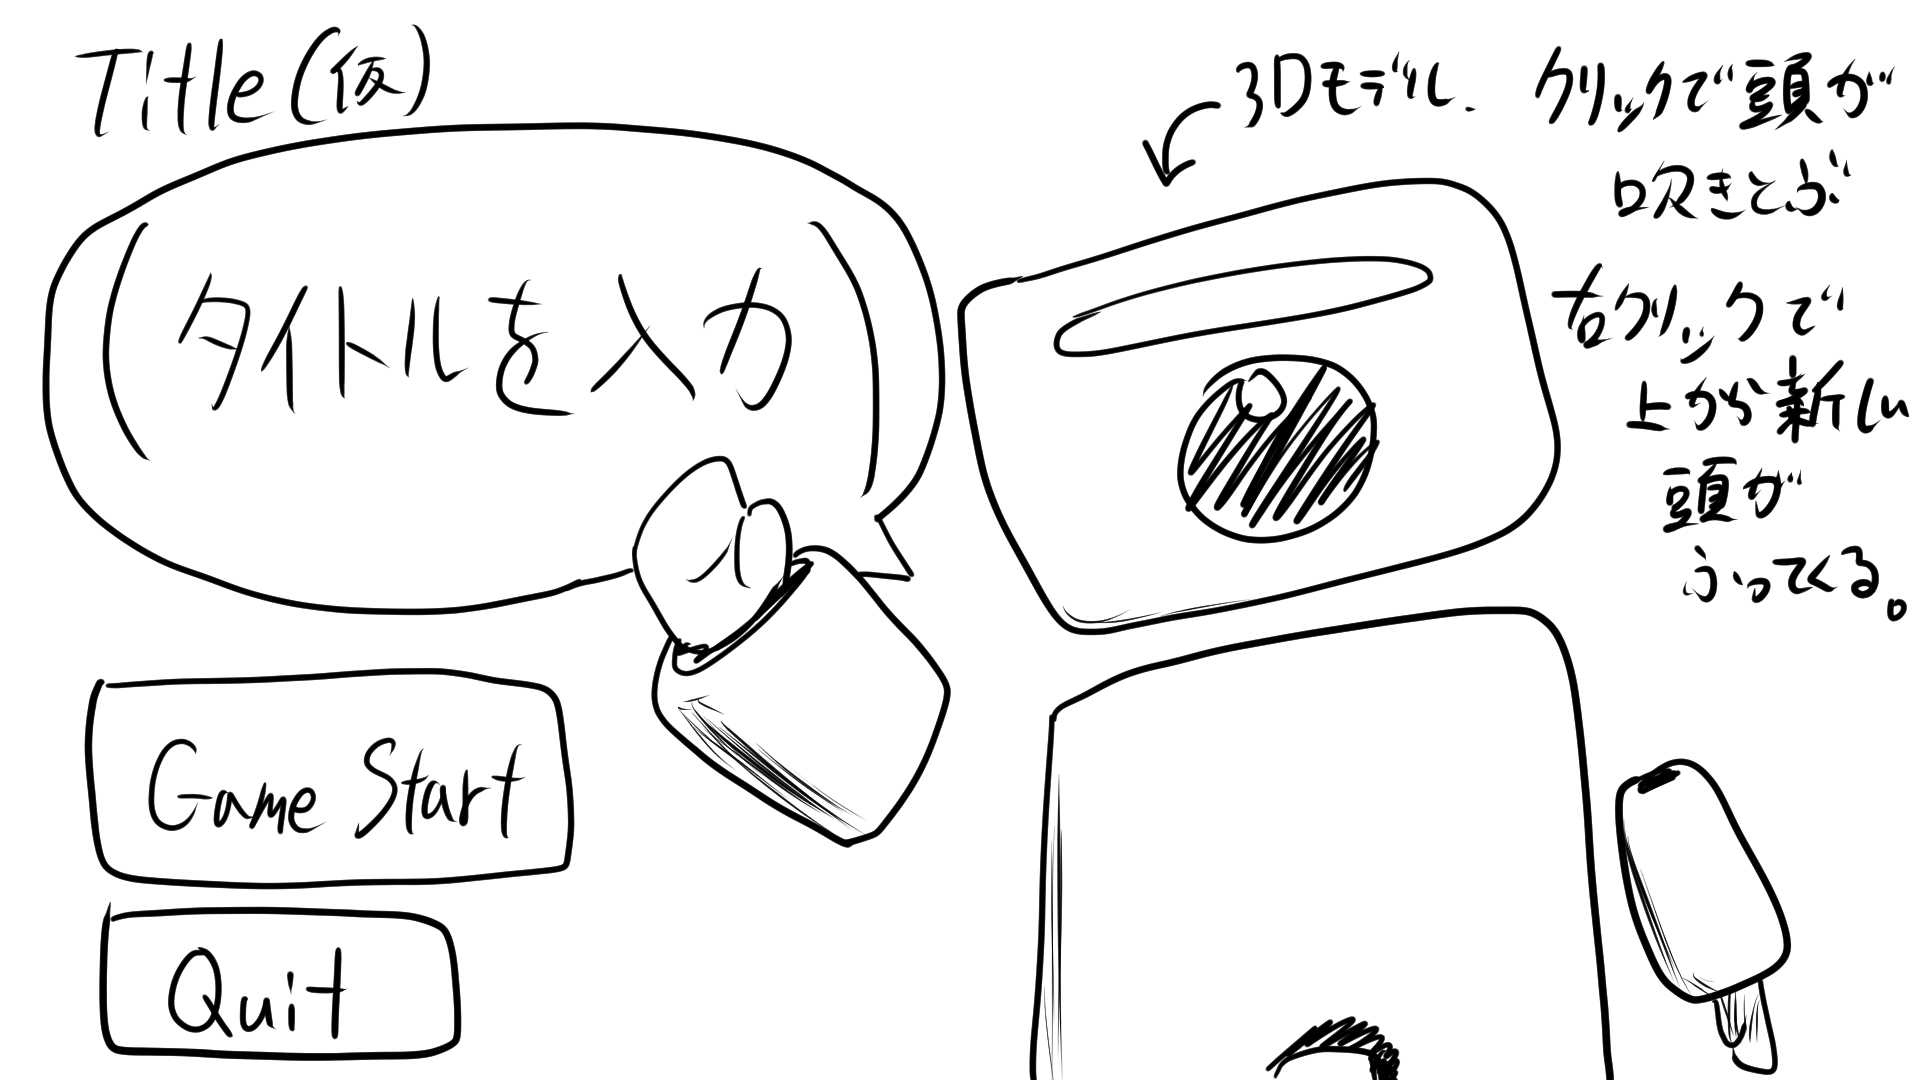 Title(仮)
(タイトルを入力)
Game Start
Quit
3Dモデル.
クリックで頭が
吹きとぶ
右クリックで
上から新しい
頭が
ふってくる。